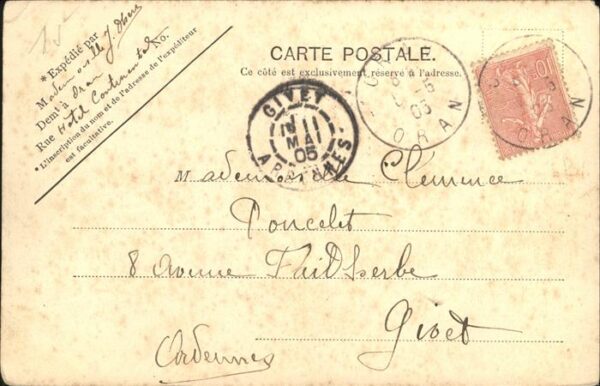 * Expédié par
Mademoiselle J.
Demt à Oran No.
Rue Hotel Continental
*L'inscription du nom et de l'adresse de l'expéditeur
est facultative.
CARTE POSTALE.
Ce côté est exclusivement réservé à l'adresse.
GIVET
11
MAI
05
ARDENNES
5
05
ORAN
10
ORAN
Mademoiselle Clemence
Poncelet
8 Avenue Faidherbe
Givet
Ardennes